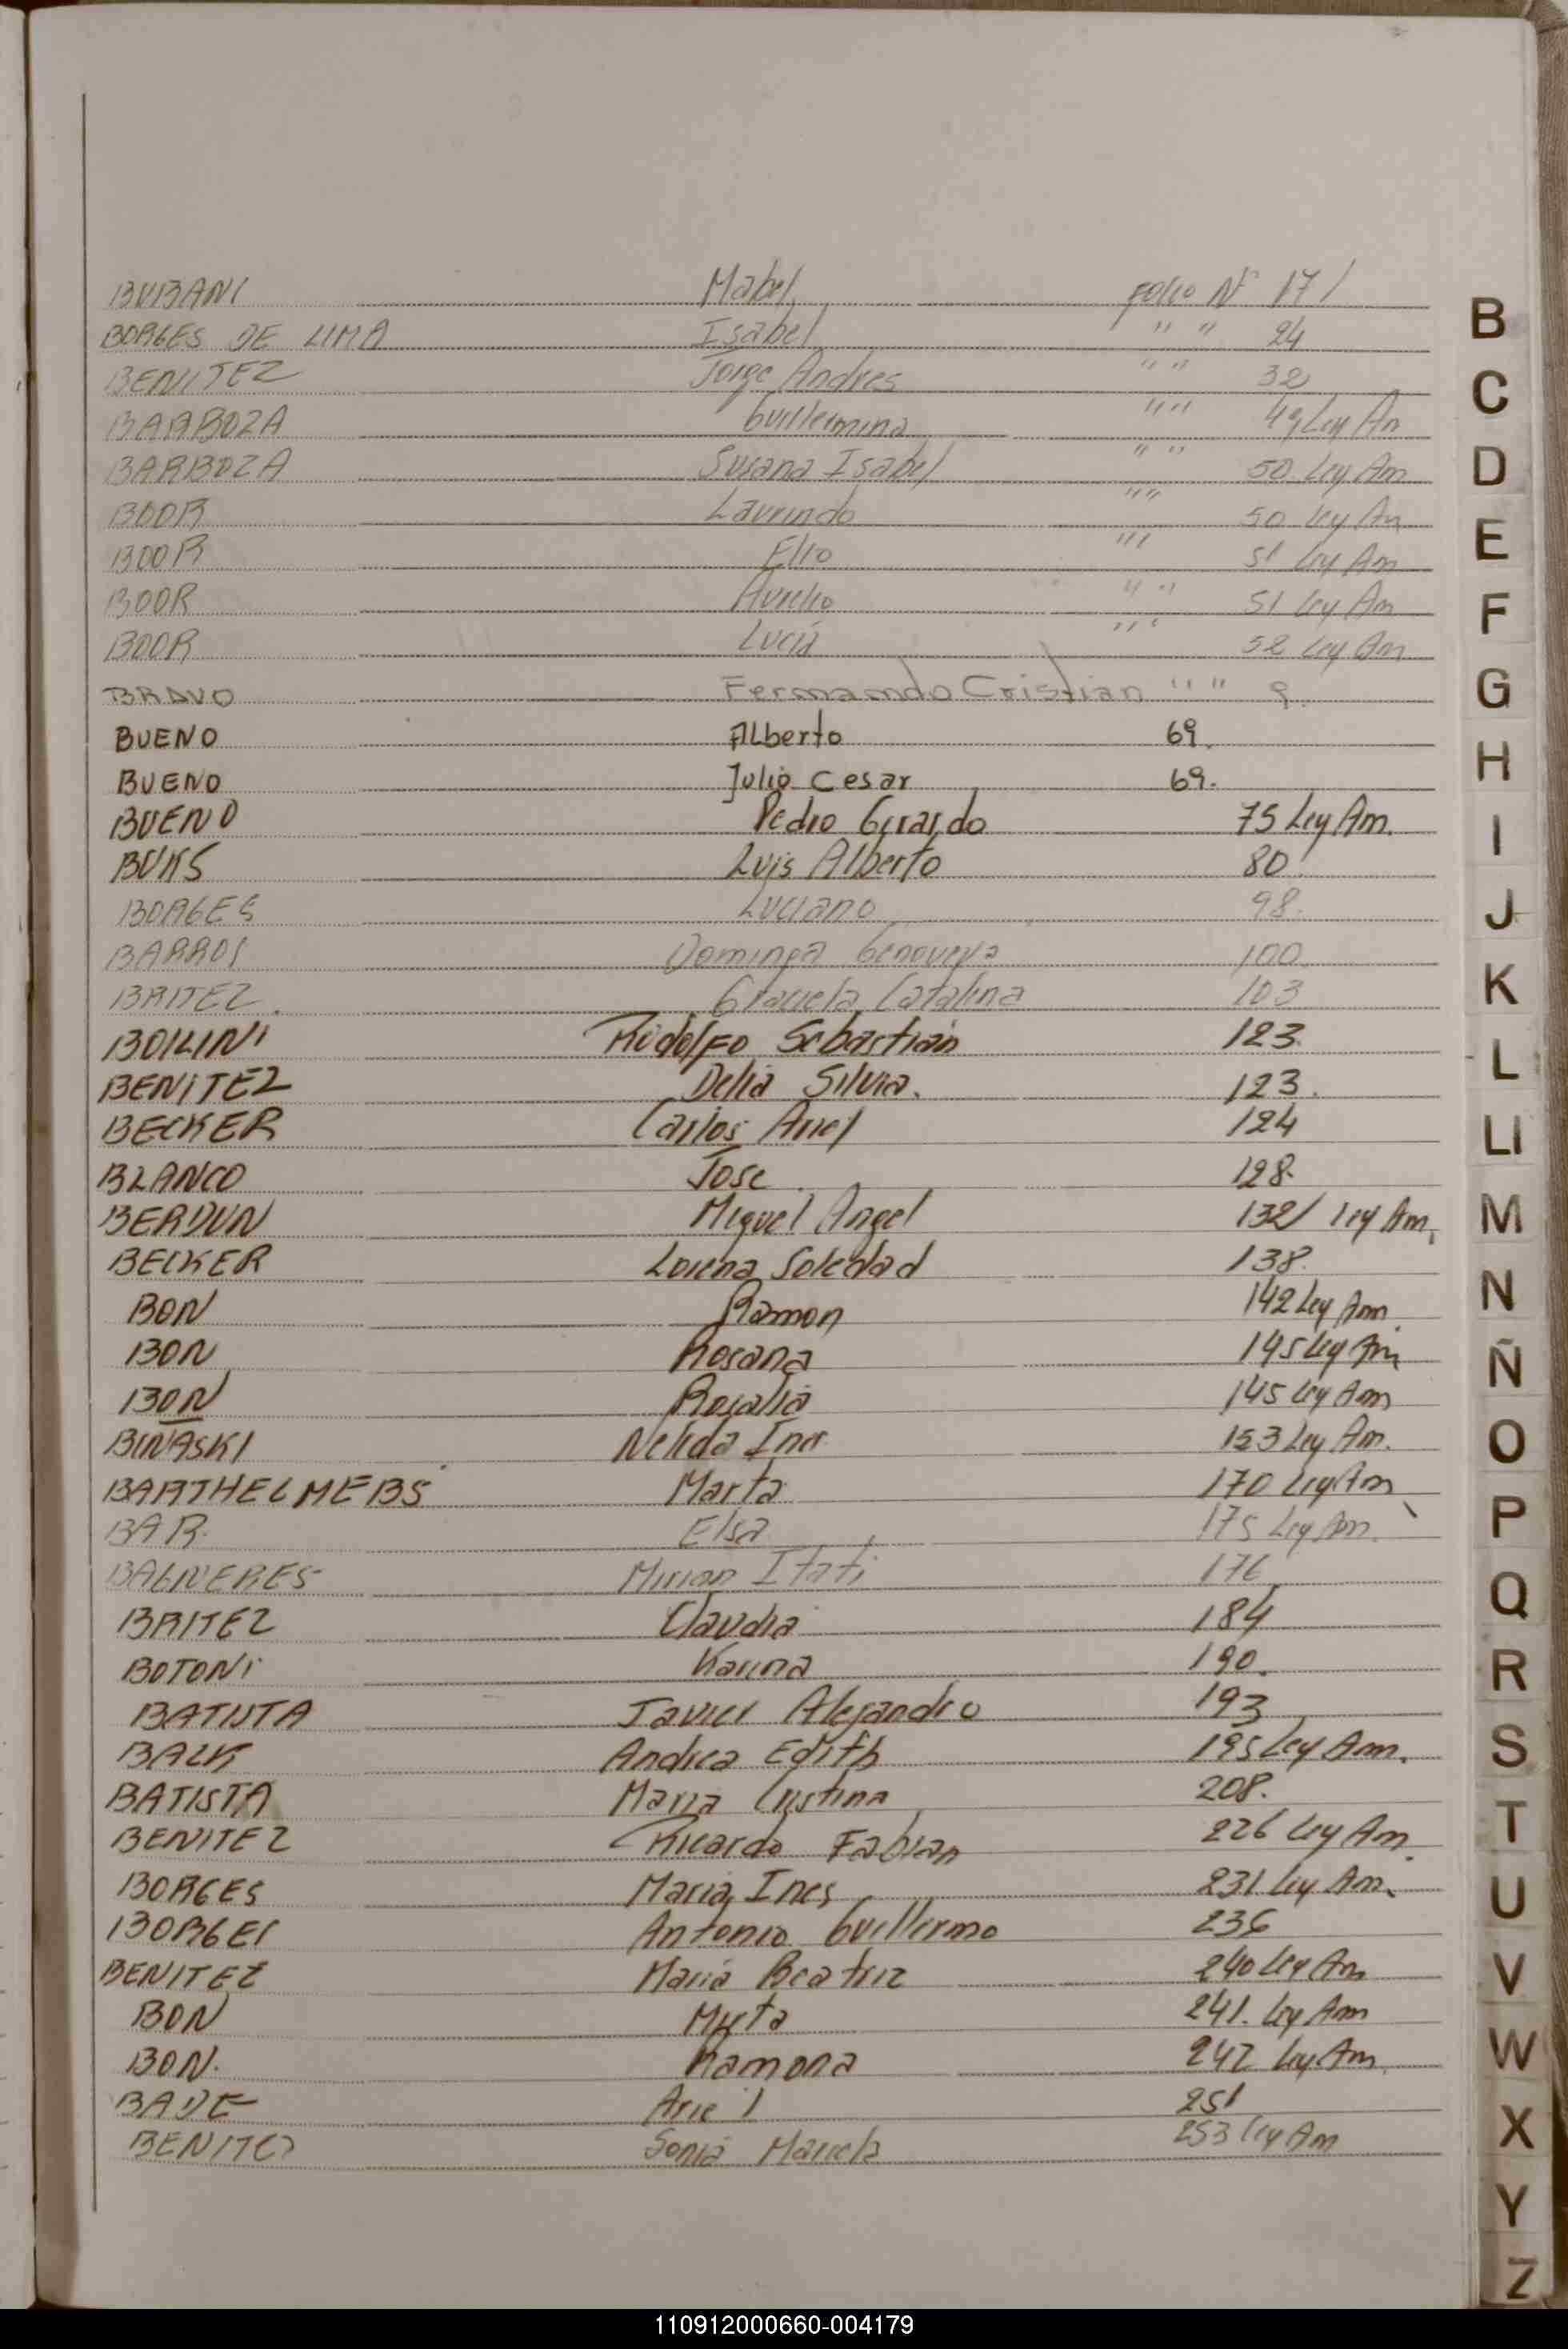 BUBANI Mabel folio Nº 17/
BORGES DE LIMA Isabel " " 24
BENITEZ Jorge Andres " " 32
BARBOZA Guillermina " " 49 Ley Am
BARBOZA Susana Isabel " " 50. Ley Am
BOOR Laurindo " " 50 Ley Am
BOOR Elio " " 51 Ley Am
BOOR Aurelio " " 51 Ley Am
BOOR Lucia " " 52 Ley Am
BRAVO Fernando Cristian " " 9.
BUENO Alberto 69.
BUENO Julio Cesar 69.
BUENO Pedro Gerardo 75 Ley Am.
BUKS Luis Alberto 80
BORGES Luciano 98.
BARROS Dominga Genoveva 100.
BRITEZ Graciela Catalina 103
Rodolfo Sebastian 123.
BENITEZ Delia Silvia. 123.
BECKER Carlos Ariel 124
BLANCO Jose 128.
BERDUN Miguel Angel 132/ Ley Am.
BECKER Lorena Soledad 138.
BON Ramon 142 Ley Am
BON Rosana 145 Ley Am
BON Rosalia 145 Ley Am
BINASKI Nelida Ines 153 Ley Am.
BARTHELMEBS Marta 170 Ley Am
BAR. Elsa 175 Ley Am.
BAGNERES Mirian Itati 176
BRITEZ Claudia 184
BOTONI Karina 190.
BATISTA Javier Alejandro 193
BALK Andrea Edith 195 Ley Am.
BATISTA Maria Cristina 208.
BENITEZ Ricardo Fabian 226 Ley Am.
BORGES Maria Ines 231 Ley Am.
BORGES Antonio Guillermo 236
BENITEZ Maria Beatriz 240 Ley Am
BON Myrta 241. Ley Am
BON. Ramona 242 Ley Am
BADE Ariel 251
BENITEZ Sonia Mariela 253 Ley Am
B
C
D
E
F
G
H
I
J
K
L
Ll
M
N
Ñ
O
P
Q
R
S
T
U
V
W
X
Y
Z
110912000660-004179